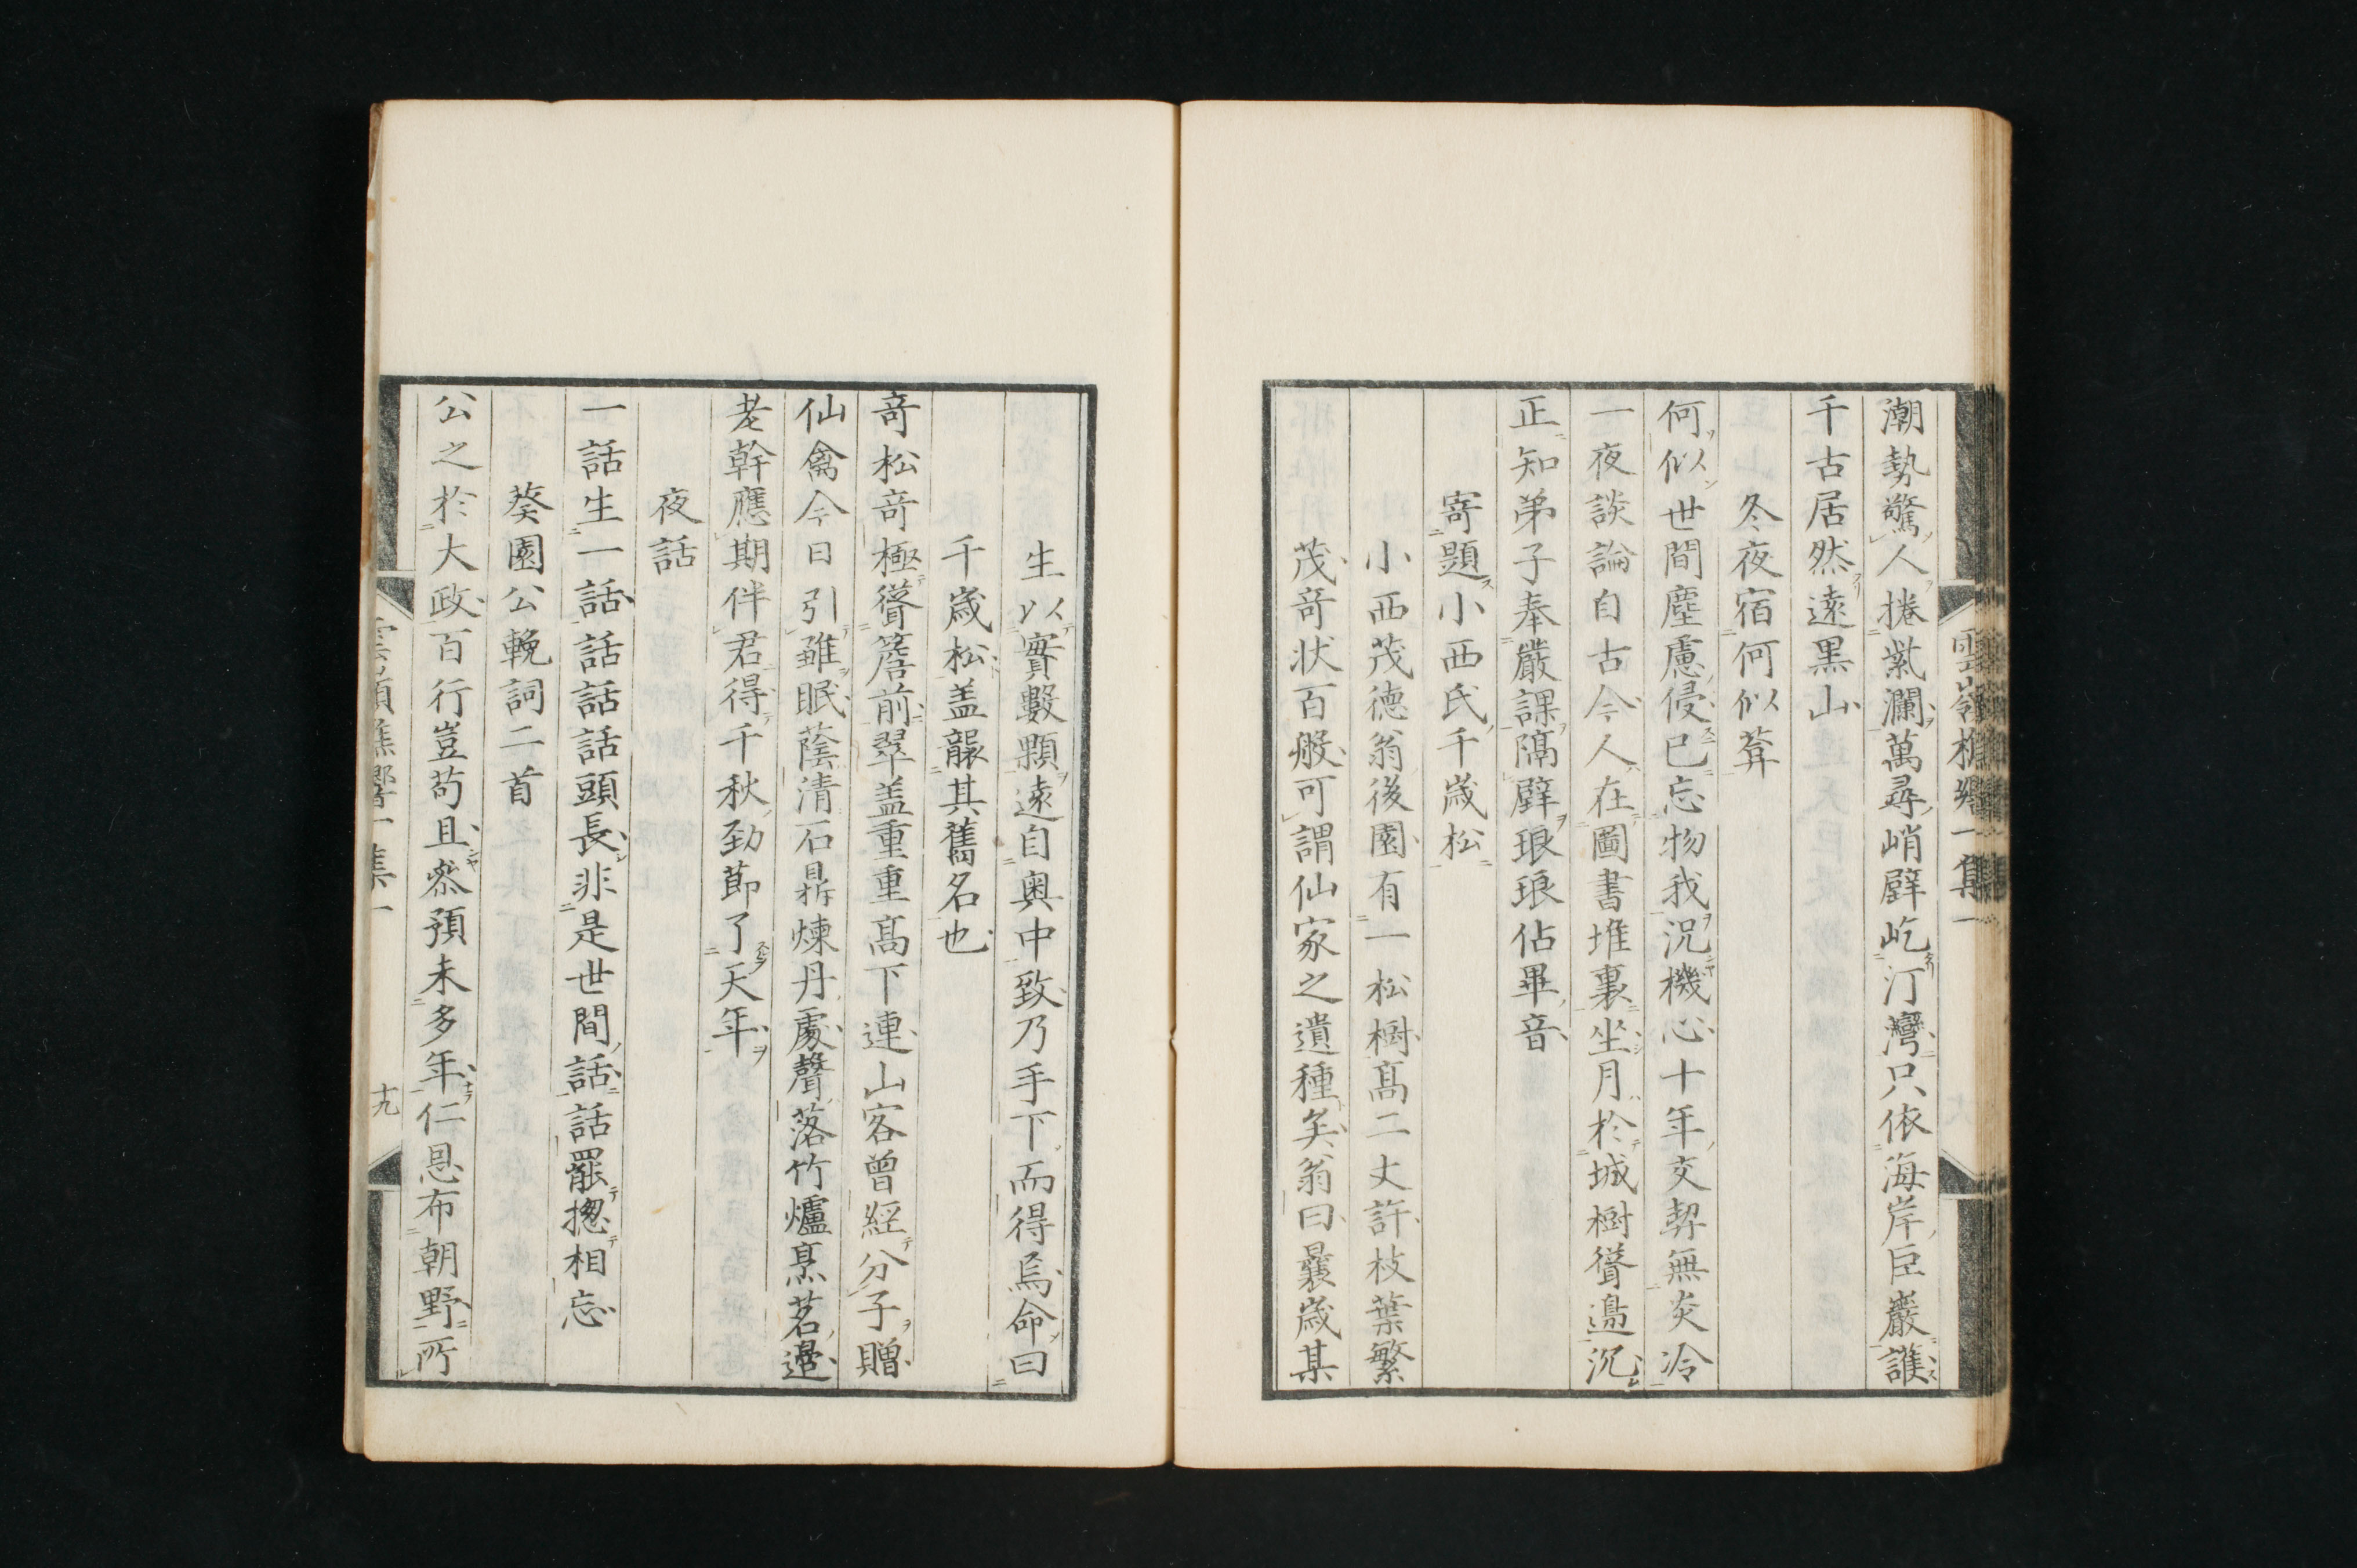 潮勢驚人捲紫瀾萬尋峭壁屹汀灣只依海岸巨巖護
千古居然遠黒山
冬夜宿何似葊
何似世間塵慮侵已忘物我況機心十年交契無炎冷
一夜談論自古今人在圖書堆裏坐月於城樹聳邉沉
正知弟子奉嚴課隔壁琅琅佔畢音
寄題小西氏千歳松
小西茂德翁後園有一松樹高二丈許枝葉繁
茂竒状百般可謂仙家之遺種矣翁曰曩歳某
生以實數顆遠自奥中致乃手下而得焉命曰
千歳松盖襲其舊名也
竒松竒極聳簷前翠盖重重高下連山客曾經分子贈
仙禽今日引雛眠蔭清石鼎煉丹處聲落竹爐烹茗邉
老幹應期伴君得千秋勁節了天年
夜話
一話生一話話話話頭長非是世間話話罷揔相忘
葵園公輓詞二首
公之於大政百行豈苟且叅預未多年仁恩布朝野所
十九